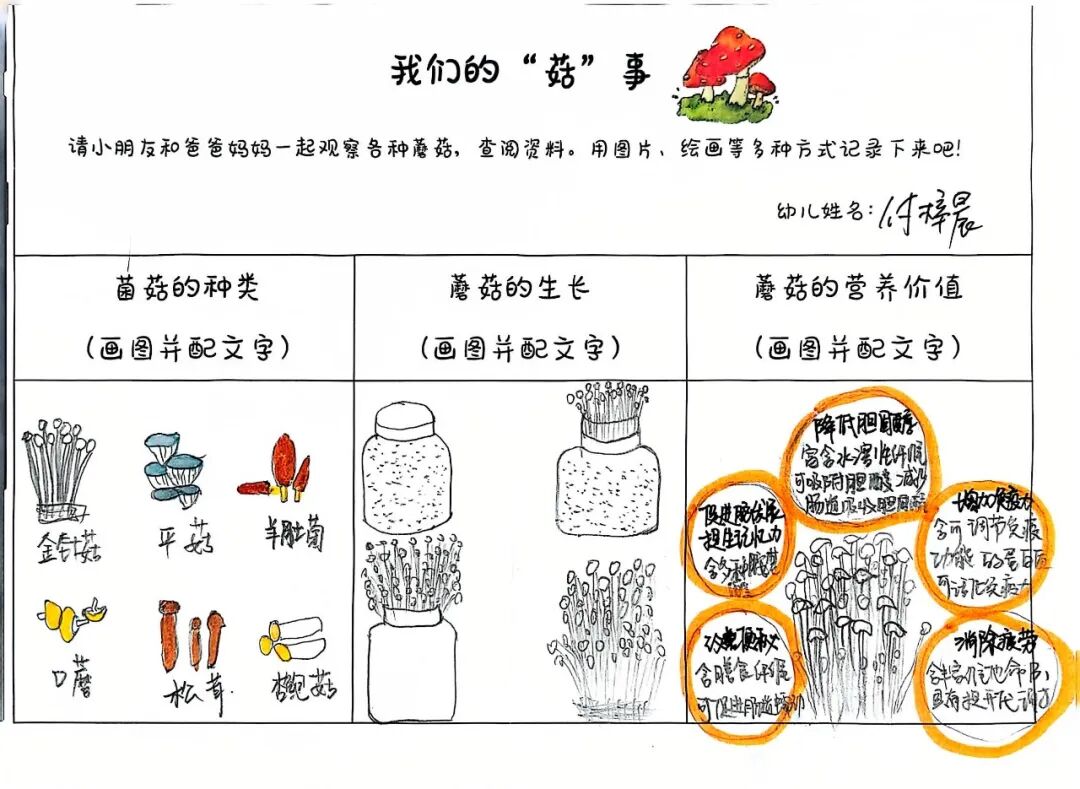 我们的“菇”事
请小朋友和爸爸妈妈一起观察各种蘑菇，查阅资料。用图片、绘画等多种方式记录下来吧！
幼儿姓名：付梓晨
菌菇的种类
（画图并配文字）
金针菇
平菇
羊肚菌
口蘑
松茸
杏鲍菇
蘑菇的生长
（画图并配文字）
蘑菇的营养价值
（画图并配文字）
降低胆固醇
富含水溶性纤维
可吸附胆酸 减少
肠道吸收胆固醇
促进肠发展
提生记忆力
含多种
增加免疫力
含可调节免疫
功能的蛋白质
可活化免疫力
治愈便秘
含膳食纤维
可促进肠道蠕动
消除疲劳
含丰富维他命B
具有提升代谢